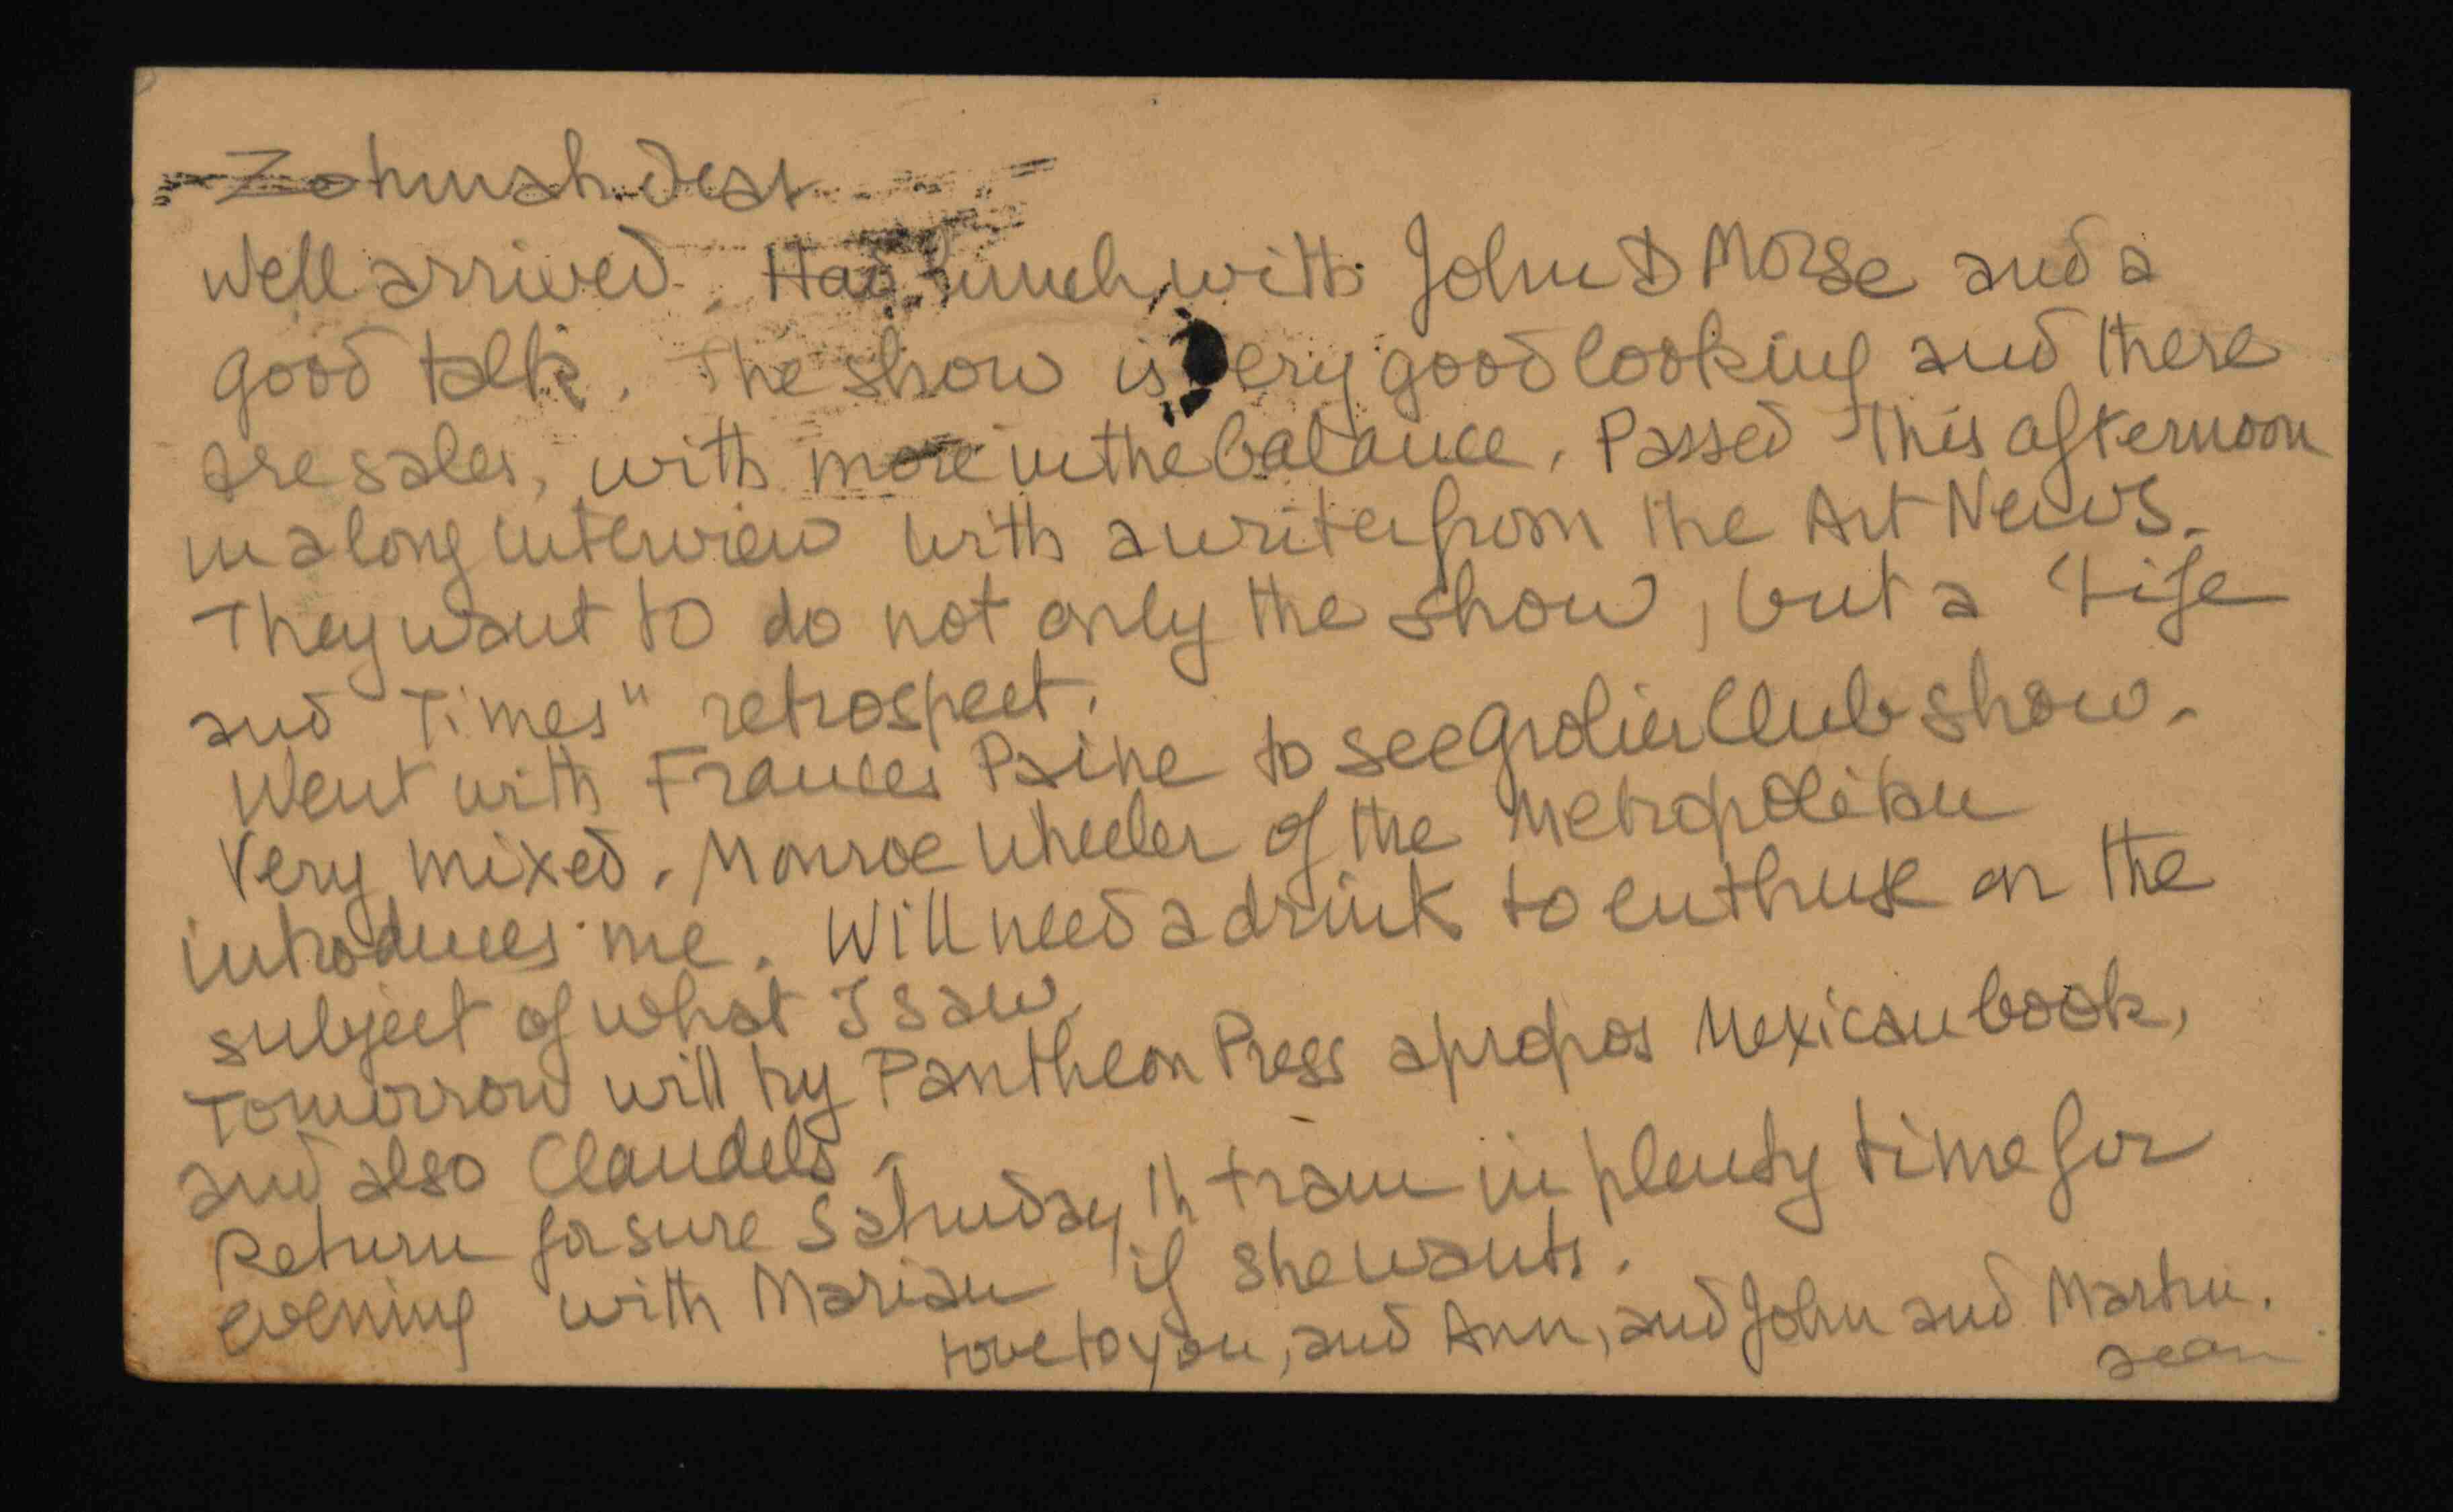 Zohmah dear
Well arrived. Had lunch with John D Morse and a
good talk. The show is very good looking and there
are sales, with more in the balance. Passed this afternoon
in a long interview with a writer from the Art News.
They want to do not only the show, but a "Life
and Times" retrospect.
Went with Frances Paine to see Grolier Club show.
Very mixed. Monroe Wheeler of the Metropolitan
introduces me. Will need a drink to enthuse on the
subject of what I saw.
Tomorrow will try Pantheon Press apropos Mexican book,
and also Claudels.
Return for sure Saturday 1h train in plenty time for
evening with Marian if she wants.
Love to you, and Ann, and John and Martin.
Jean